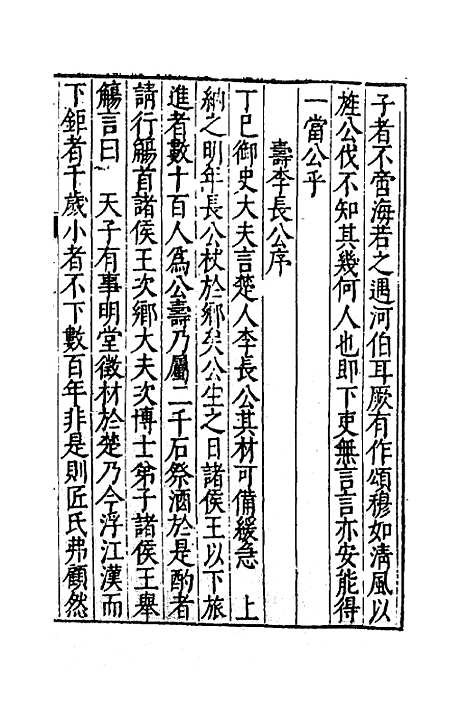 子者不啻海若之遇河伯耳厥有作頌穆如清風以
旌公伐不知其幾何人也即下吏無言言亦安能得
一當公乎
壽李長公序
丁巳御史大夫言楚人李長公其材可備緩急　上
納之明年長公杖於鄉矣公生之日諸侯王以下旅
進者數十百人為公壽乃屬二千石祭酒於是酌者
請行觴首諸侯王次鄉大夫次博士弟子諸侯王舉
觴言曰　天子有事明堂徵材於楚乃今浮江漢而
下鉅者千歲小者不下數百年非是則匠氏弗顧然